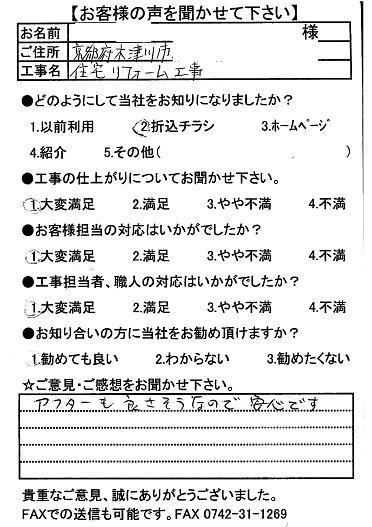 【お客様の声を聞かせて下さい】
お名前 様
ご住所 京都府木津川市
工事名 住宅リフォーム工事
●どのようにして当社をお知りになりましたか？
1.以前利用 2.折込チラシ 3.ホームページ
4.紹介 5.その他( )
●工事の仕上がりについてお聞かせ下さい。
1.大変満足 2.満足 3.やや不満 4.不満
●お客様担当の対応はいかがでしたか？
1.大変満足 2.満足 3.やや不満 4.不満
●工事担当者、職人の対応はいかがでしたか？
1.大変満足 2.満足 3.やや不満 4.不満
●お知り合いの方に当社をお勧め頂けますか？
1.勧めても良い 2.わからない 3.勧めたくない
☆ご意見・ご感想をお聞かせ下さい。
アフターも良さそうなので安心です
貴重なご意見、誠にありがとうございました。
FAXでの送信も可能です。FAX 0742-31-1269